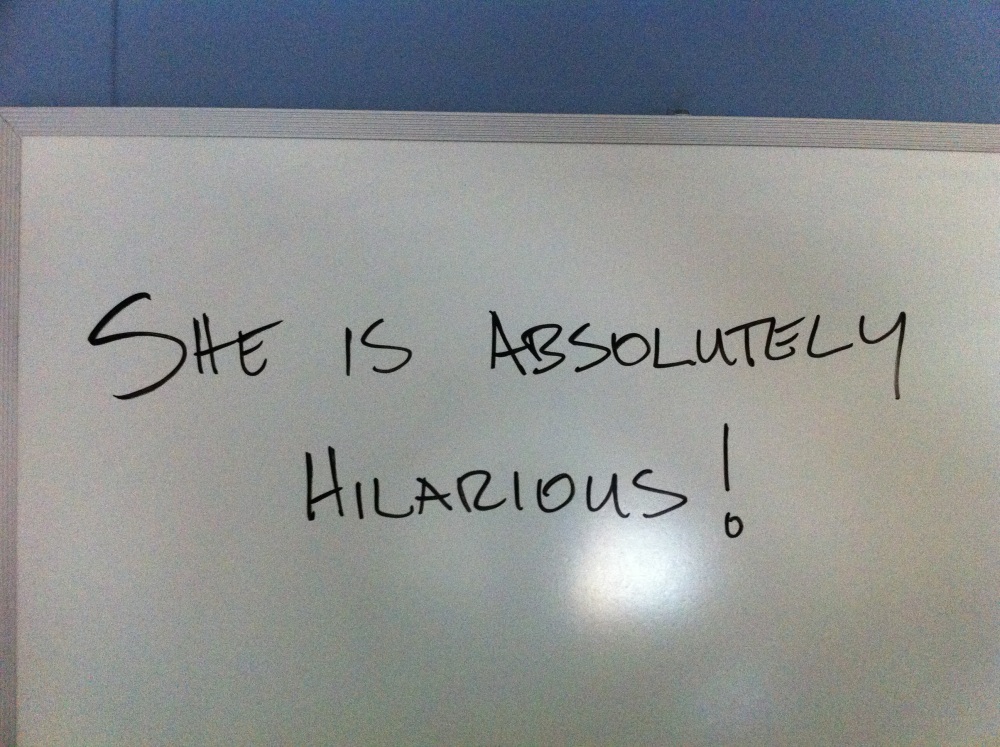 SHE IS ABSOLUTELY
HILARIOUS!